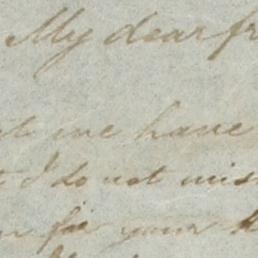 My dear fr
we have
I do not wis
for your